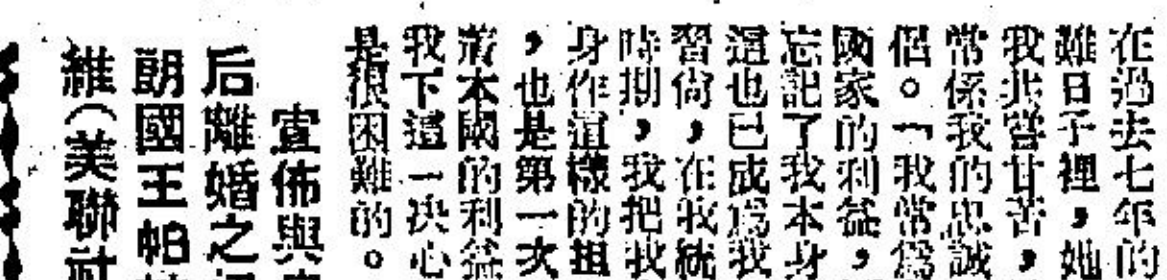 在過去七年的
難日子裡，她
我共嘗甘苦，
常係我的忠誠
侶。「我常爲
國家的利益，
忘記了我本身
這也已成爲我
習尙，在我統
時期，我把我
身作這樣的担
，也是第一次
於本國的利益
我下這一决心
是很困難的。
宣佈與
后離婚之
朗國王帕
維（美聯社